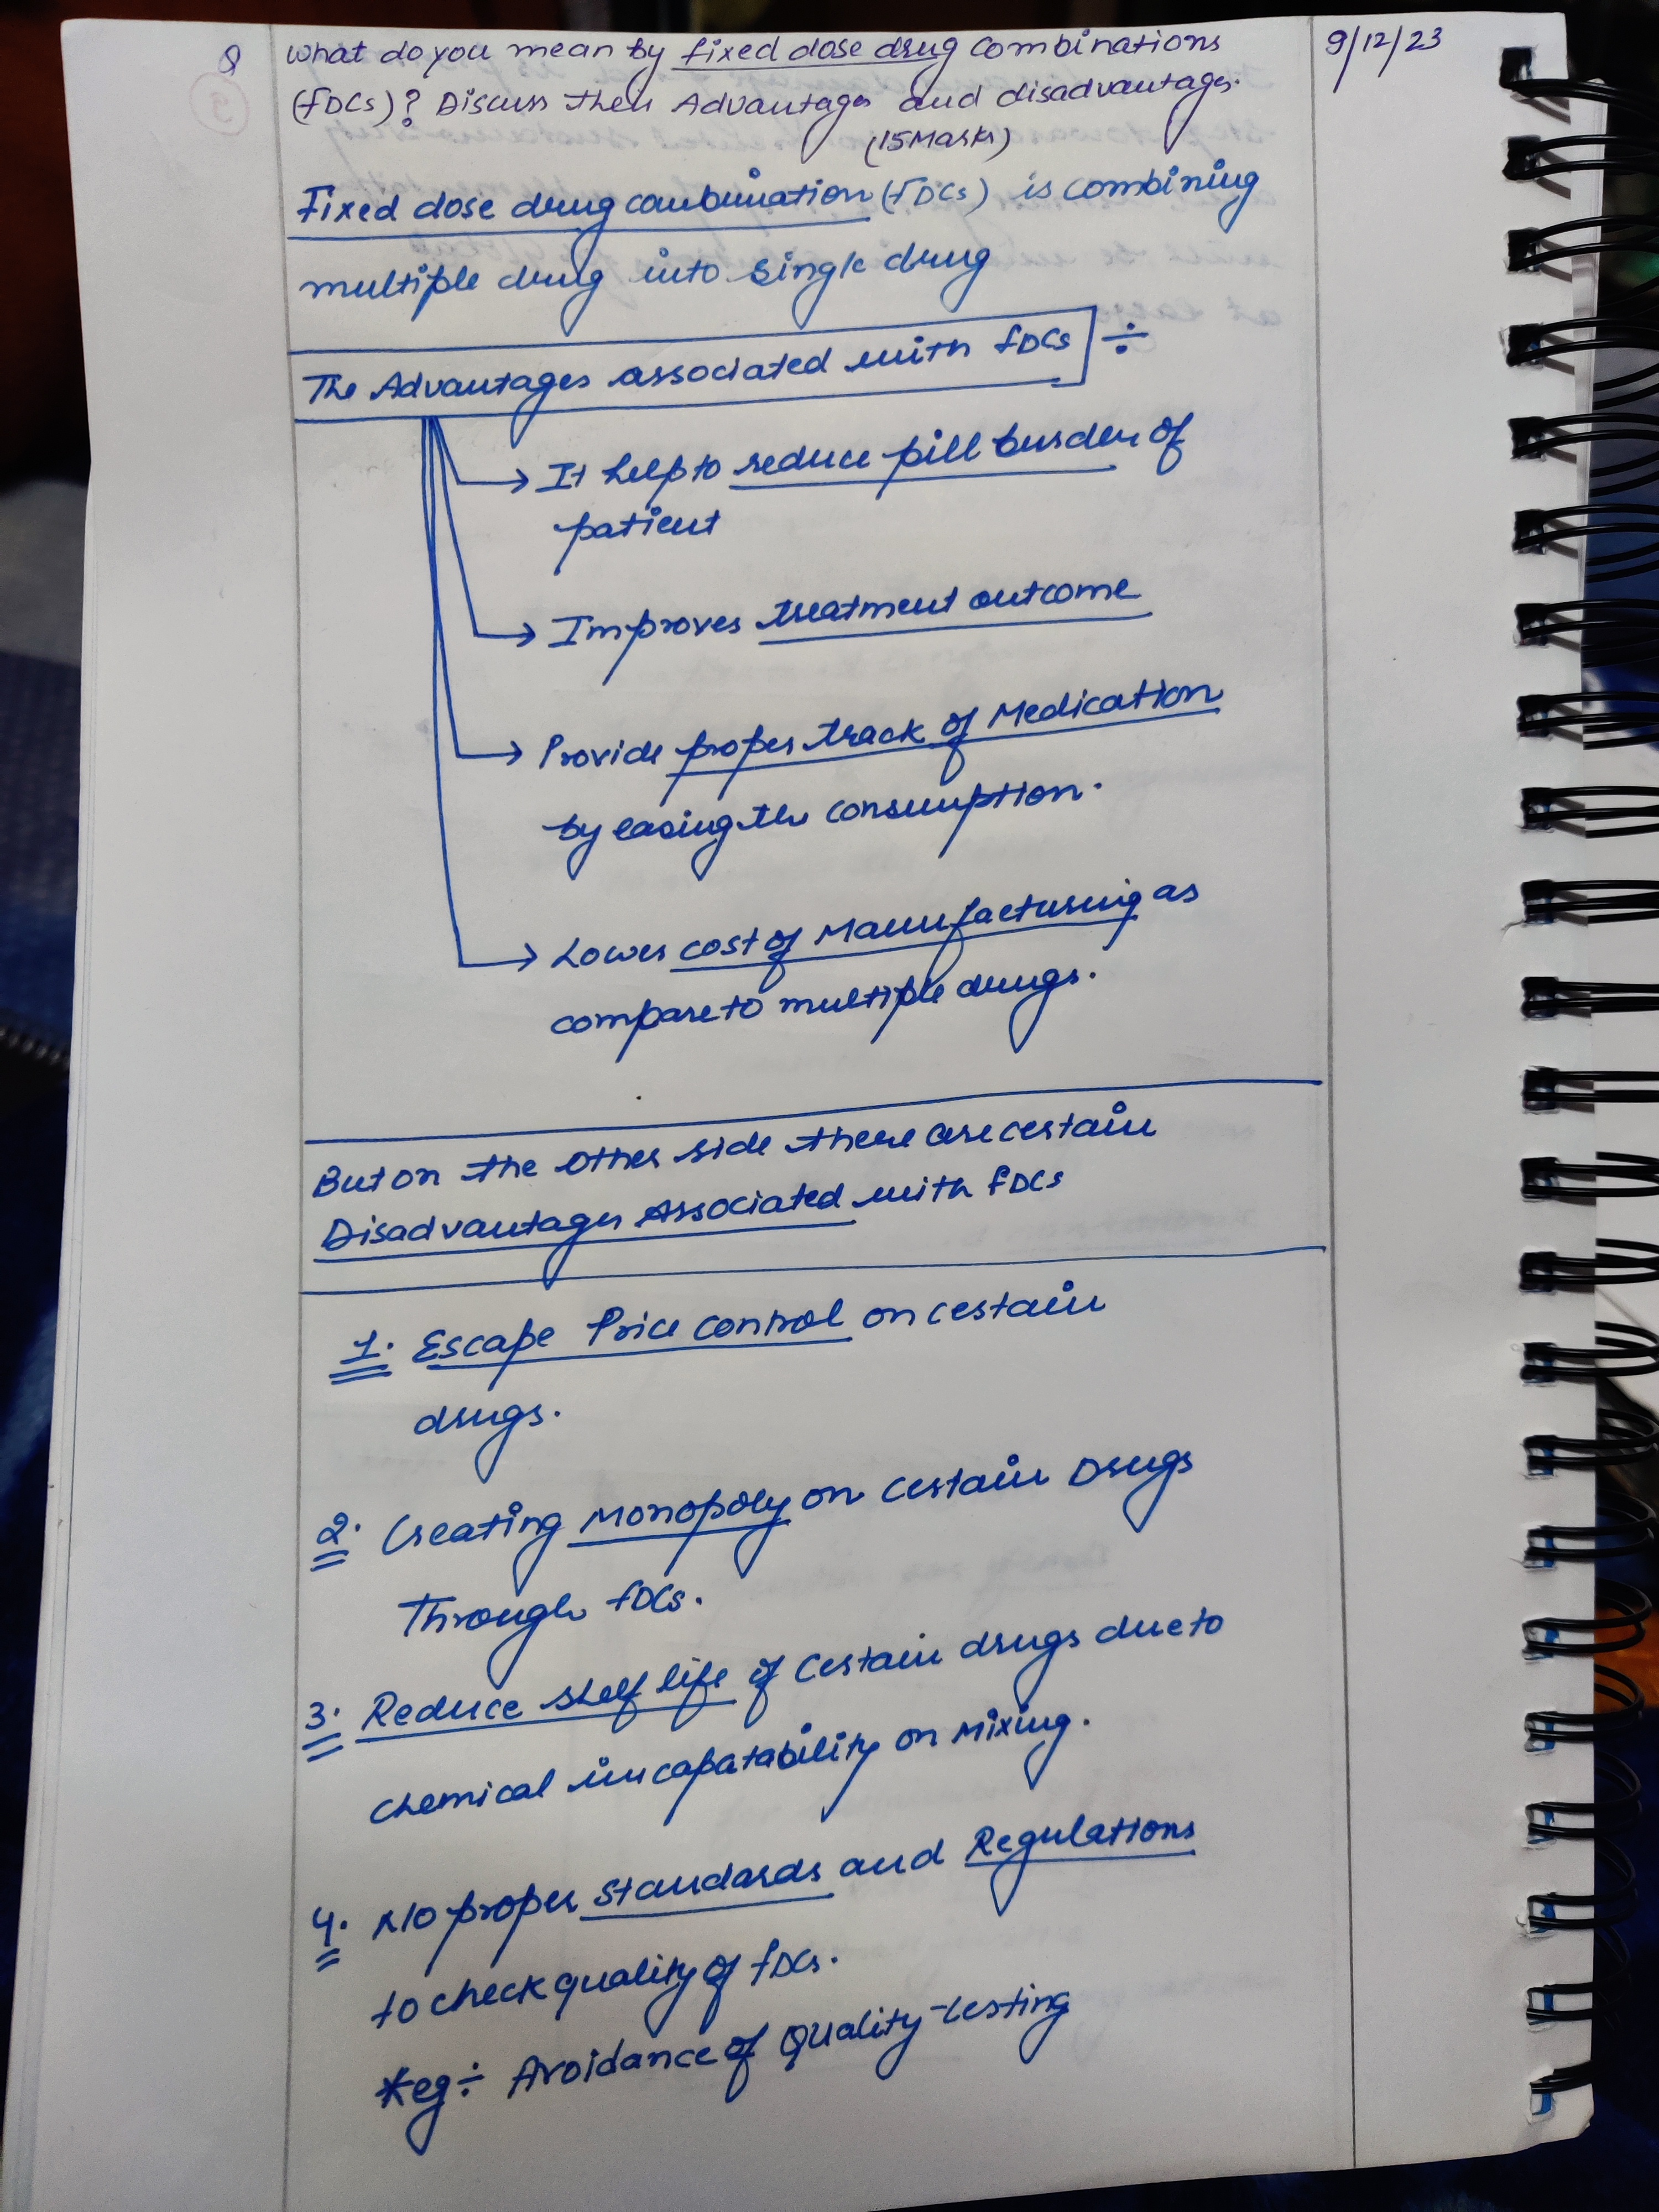 9/12/23
Q What do you mean by fixed dose drug combinations
(FDCs)? Discuss their Advantages and disadvantages.
(15 Marks)
Fixed dose drug combination (FDCs) is combining
multiple drug into single drug
The Advantages associated with FDCs ÷
→ It help to reduce pill burden of
patient
→ Improves treatment outcome
→ Provide proper track of Medication
by easing the consumption.
→ Lower cost of Manufacturing as
compare to multiple drugs.
But on the other side there are certain
Disadvantages Associated with FDCs
1. Escape Price control on certain
drugs.
2. Creating Monopoly on certain Drugs
Through FDCs.
3. Reduce shelf life of certain drugs due to
chemical incapatability on mixing.
4. No proper standards and Regulations
to check quality of FDCs.
*eg ÷ Avoidance of Quality-testing